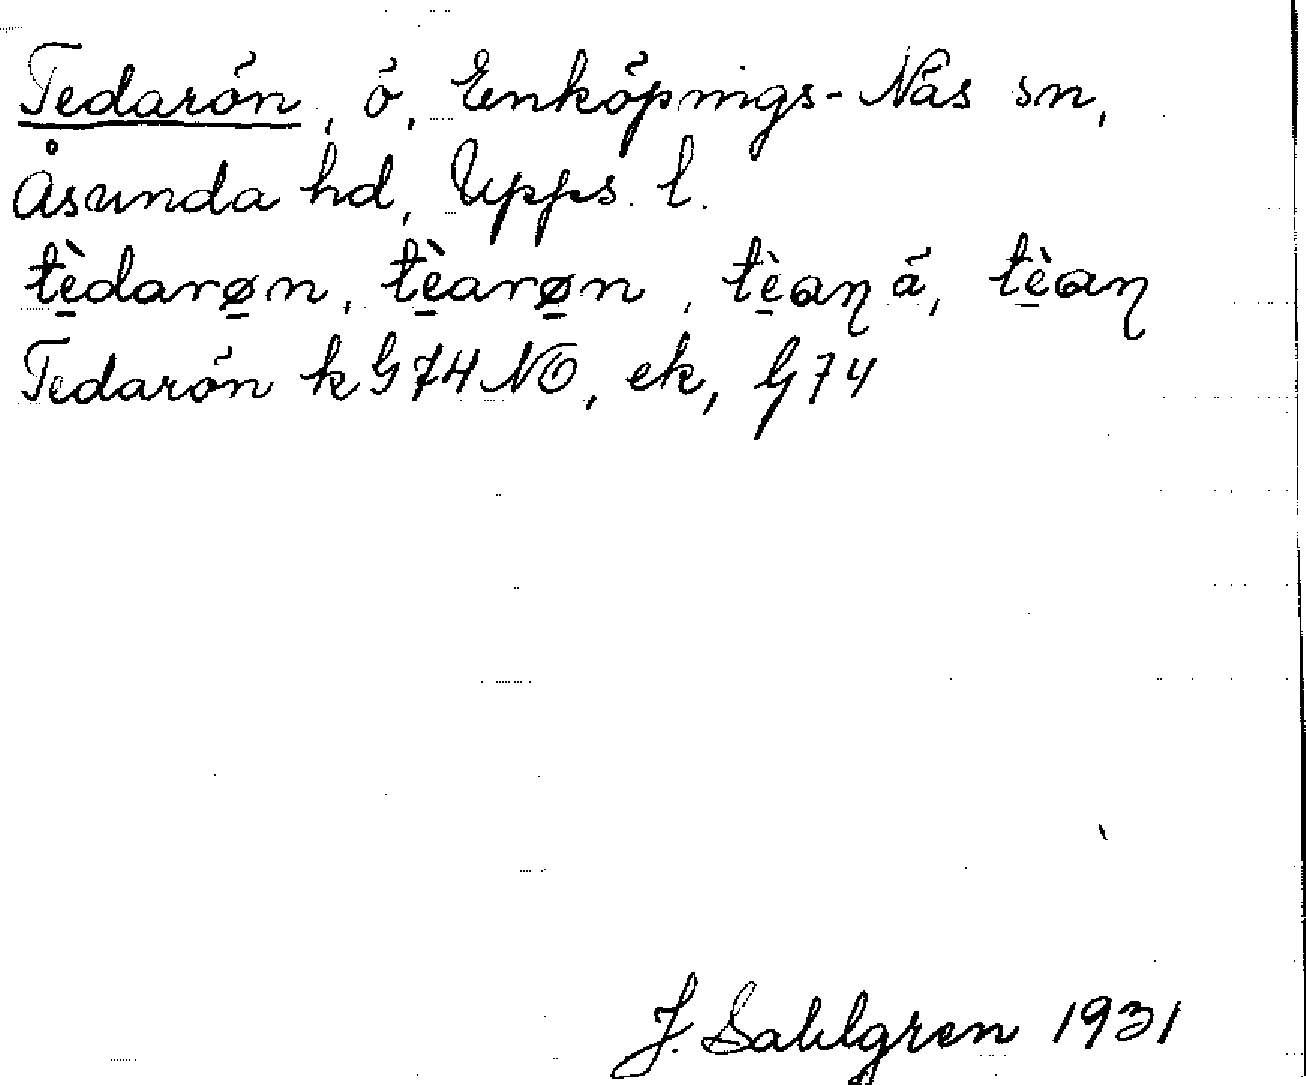 Tedarön, ö, Enköpings-Näs sn,
Åsunda hd, Upps. l.
tè̱darø̱n, tè̱arø̱n, tè̱aꞃ ä, tè̱aꞃ
Tedarön k G74NO, ek, G74
J. Sahlgren 1931